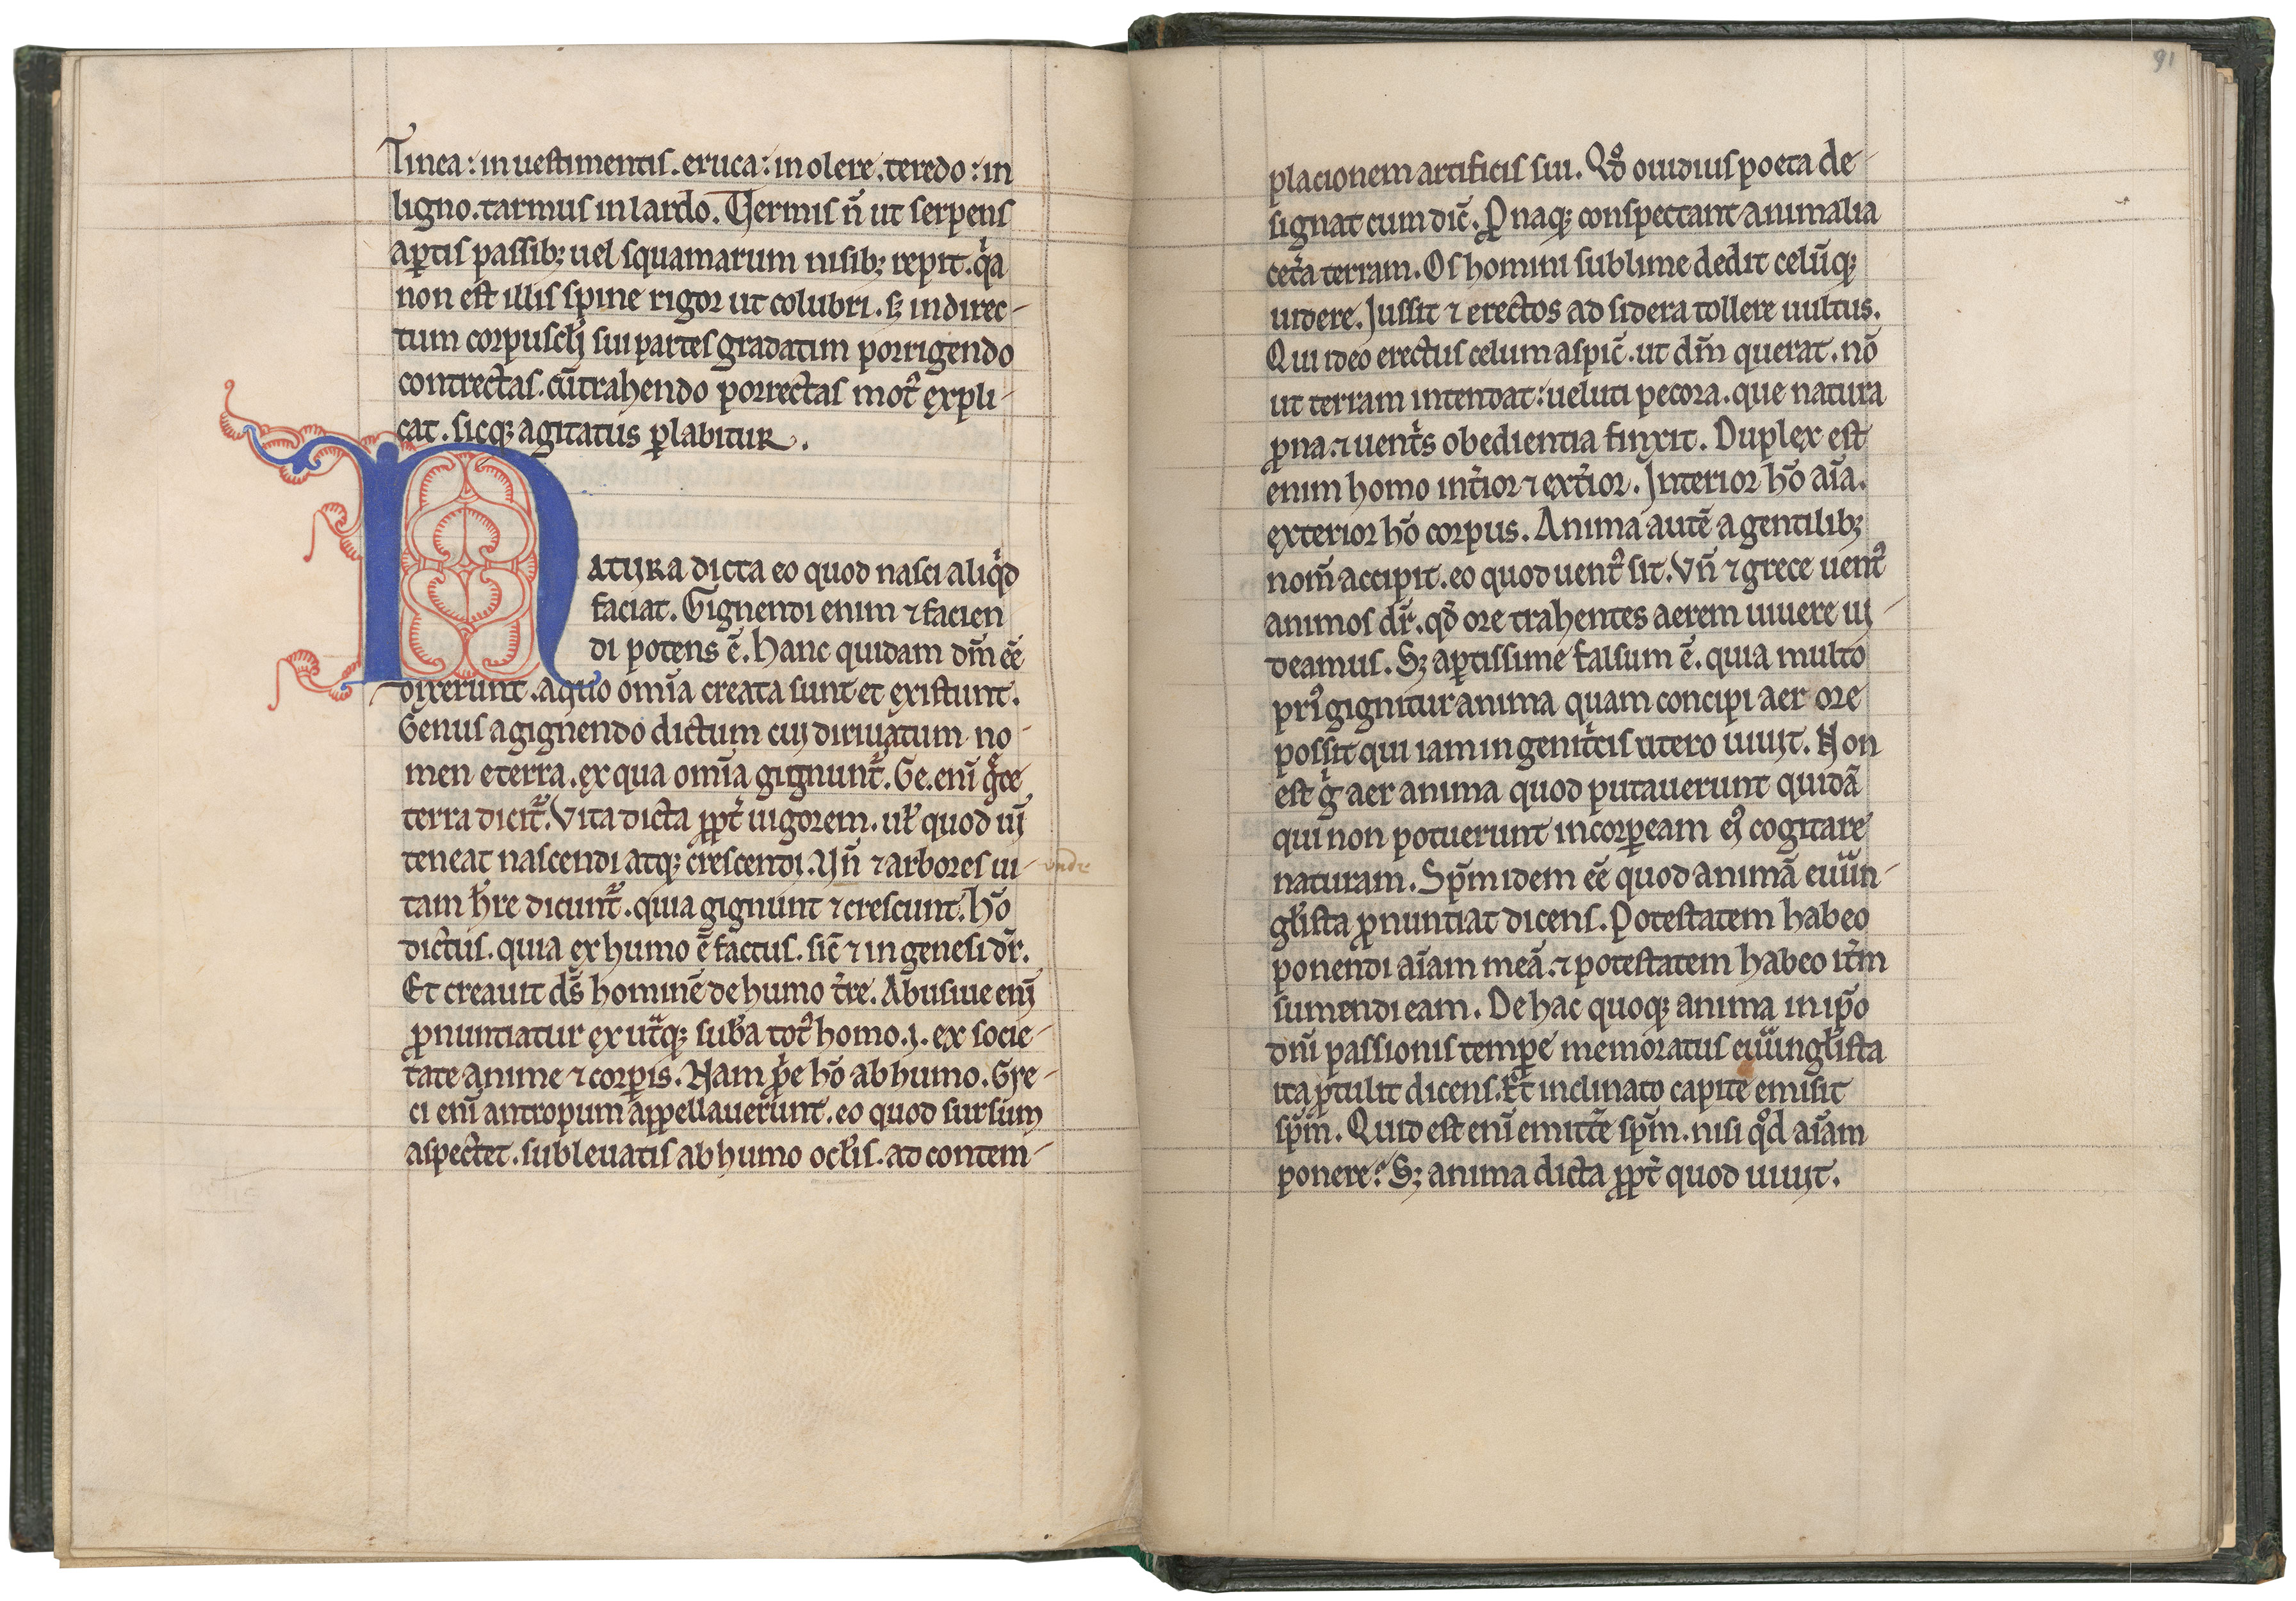 Tinea: in uestimentis. eruca: in olere. teredo: in
ligno. tarmus in lardo. Uermis n̄ ut serpens
aꝑtis passib; uel squamarum nisib; repit. qͥa
non est illis spine rigor ut colubri. sꝫ in direc-
tum corpuscłi sui partes gradatim porrigendo
contrectas. cūtrahendo porrectas motꝰ expli-
cat. sicqꝫ agitatus ꝑlabitur.
NATURA dicta eo quod nasci aliqͥd
faciat. Gignendi enim ⁊ facien
di potens ē. Hanc quidam dm̄ eē
dixerunt. a quo om̄ia creata sunt et existunt.
Genus a gignendo dictum cui diriuatum no-
men e terra. ex qua om̄ia gignunt᷑. Ge. enī gͣce
terra dicit᷑. Vita dicta ꝓpt̉ uigorem. ul̵ quod uī
teneat nascendi atqꝫ crescendi. Vn̄ ⁊ arbores ui-
unde
tam hr̄e dicunt᷑. quia gignunt ⁊ crescunt. Hō
dictus. quia ex humo ē factus. sic̄ ⁊ in genesi dr̄.
Et creauit ds̄ hominē de humo t̉re. Abusiue enī
ꝓnuntiatur ex utͣqꝫ sub̄a totꝰ homo. i. ex socie-
tate anime ⁊ corꝑis. Nam ꝓpͥe hō ab humo. Gre-
ci enī antropum appellauerunt. eo quod sursum
aspectet. subleuatis ab humo ocl̵is. ad contem-
91
placionem artificis sui. Qd̊ ouidius poeta de-
signat cum dic̄. Ꝓnaqꝫ conspectant animalia
cet̉a terram. Os homini sublime dedit celūqꝫ
uidere. Iussit ⁊ erectos ad sidera tollere uultus.
Qui ideo erectus celum aspic̄. ut dm̄ querat. nō
ut terram intendat: ueluti pecora. que natura
ꝓna. ⁊ uentͥs obedientia finxit. Duplex est
enim homo int̉ior ⁊ ext̉ior. Interior hō aīa.
exterior hō corpus. Anima autē a gentilib;
nom̄ accipit. eo quod uentꝰ sit. Vn̄ ⁊ grece uentꝰ
animos dr̄. qd̄ ore trahentes aerem uiuere ui-
deamus. Sꝫ aꝑtissime falsum ē. quia multo
priꝰ gignitur anima quam concipi aer ore
possit qui iam in genitͥcis utero uiuit. Non
est gͦ aer anima quod putauerunt quidā
qui non potuerunt incorꝑeam eiꝰ cogitare
naturam. Sp̄m idem eē quod animā euͣn-
gl̵ista ꝓnuntiat dicens. Potestatem habeo
ponendi aīam meā. ⁊ potestatem habeo it̉m
sumendi eam. De hac quoqꝫ anima in ip̄o
dn̄i passionis tempe memoratus euͣngl̵ista
ita ꝓtulit dicens. Et inclinato capite emisit
sp̄m. Quid est enī emitt̉e sp̄m. nisi qͦd aīam
ponere? Sꝫ anima dicta ꝓpt̉ quod uiuit.